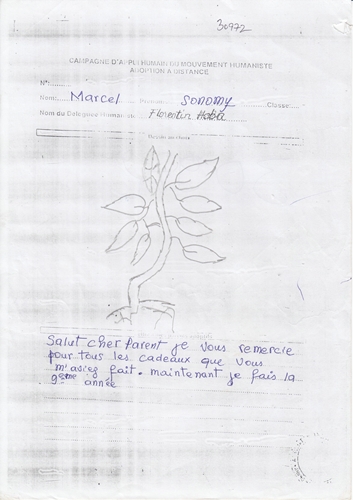 30972
CAMPAGNE D'APPUI HUMAIN DU MOUVEMENT HUMANISTE
ADOPTION A DISTANCE
N°:
Nom: Marcel Prénom: SONOMY Classe:
Nom du Délégué Humaniste: Florentin
Dessin au choix
Salut cher Parent je vous remercie
pour tous les cadeaux que vous
m'aviez fait. maintenant je fais la
9ème année